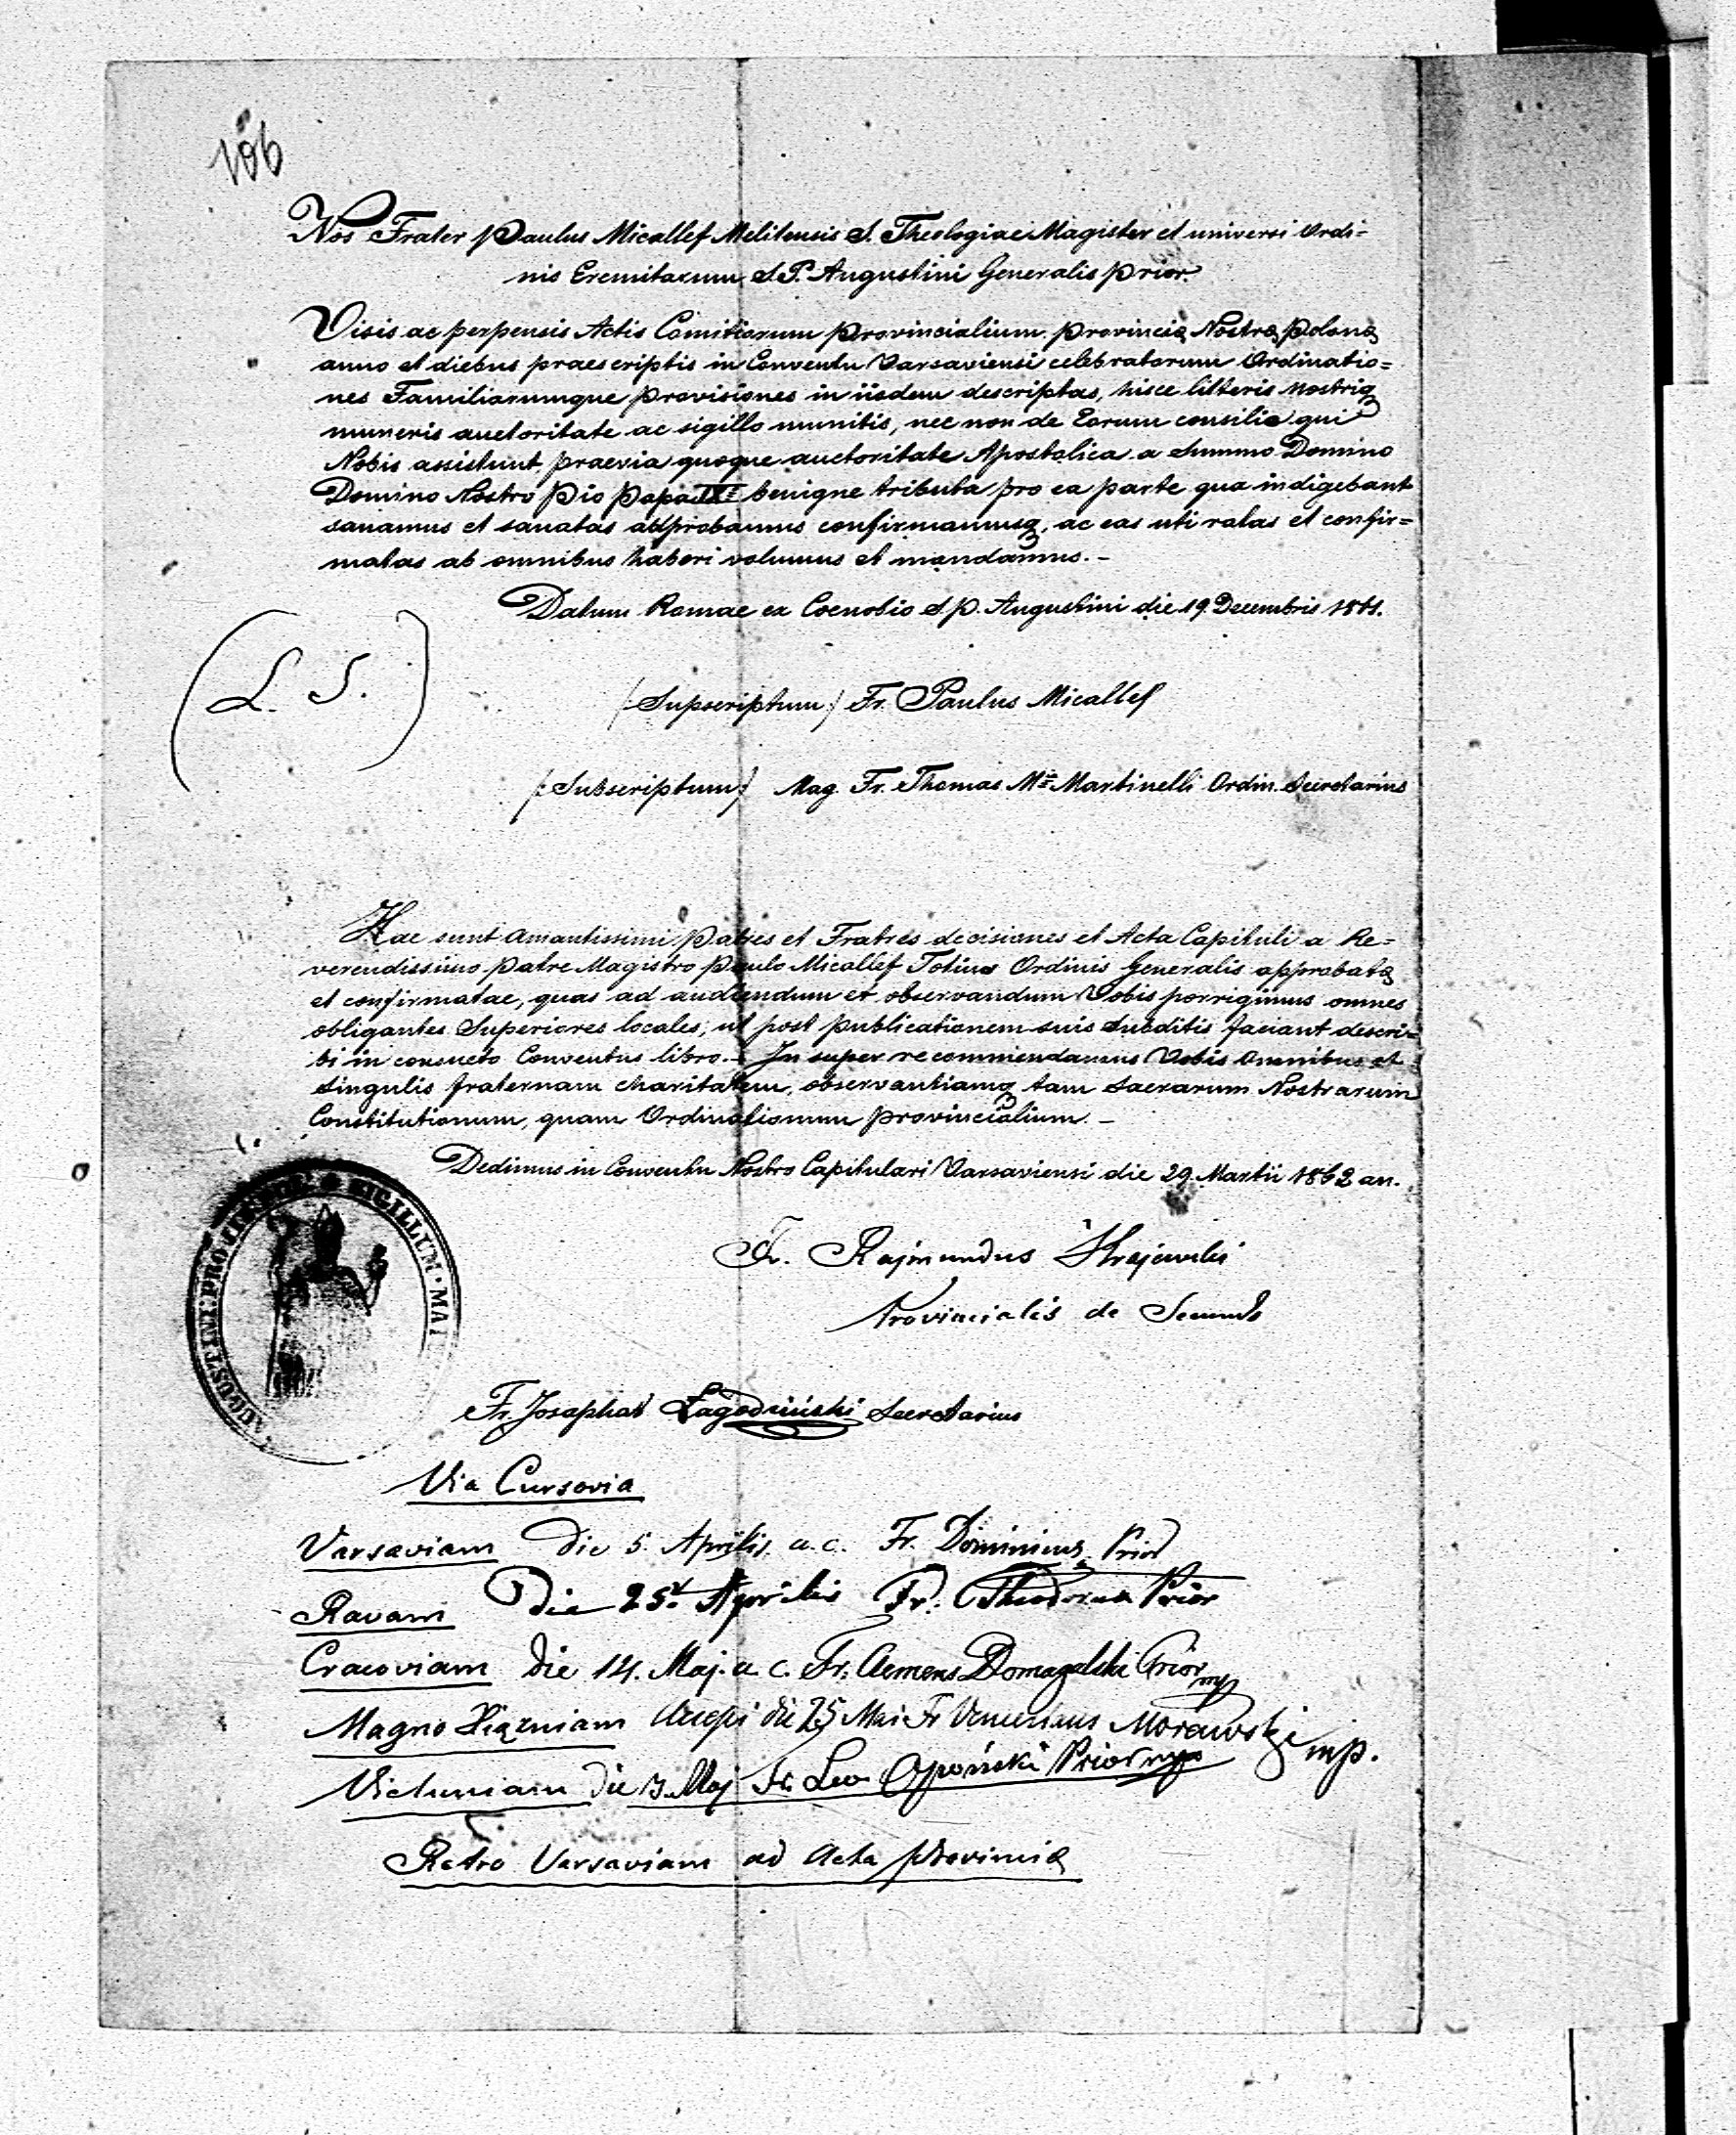 106
Nos Frater Paulus Micallef Melitensis S. Theologiae Magister et universi Ordi=
nis Eremitarum S. P. Augustini Generalis Prior.
Visis ac perpensis Actis Comitiorum Provincialium Provinciæ Nostræ Polonæ
anno et diebus praescriptis in Conventu Varsaviensi celebratorum Ordinatio=
nes Familiarumque provisiones in iisdem descriptas, hisce litteris nostriq
muneris auctoritate ac sigillo munitis, nec non de Eorum consilio qui
Nobis assistunt, praevia quoque auctoritate Apostolica a Summo Domino
Domino Nostro Pio Papa IX benigne tributa pro ea parte qua indigebant
sanamus et sanatas adprobamus confirmamusq, ac eas uti ratas et confir=
matas ab omnibus haberi volumus et mandamus. -
Datum Romae ex Coenobio S. P. Augustini die 19. Decembris 1861.
(L. S.)
/:Supscriptum:/ Fr. Paulus Micallef
/:Subscriptum:/ Mag. Fr. Thomas Mª Martinelli Ordin. Secretarius
Hae sunt Amantissimi Patres et Fratres decisiones et Acta Capituli a Re=
verendissimo Patre Magistro Paulo Micallef Totius Ordinis Generalis approbatæ
et confirmatae, quas ad audiendum et observandum Vobis porrigimus omnes
obligantes Superiores locales, ut post publicationem suis subditis faciant descri=
bi in consueto Conventus libro. - In super recommendamus Vobis omnibus et
singulis fraternam charitatem, observantiamq tam Sacrarum Nostrarum
Constitutionum, quam Ordinationum Provincialium. -
Dedimus in Conventu Nostro Capitulari Varsaviensi die 29. Martii 1862 an.
AUGUSTINI PRO SIGILLUM · MAI
Fr. Rajmundus Krajewski
Provincialis de Secundo
Fr. Josaphat Łagodziński Secretarius
Via Cursoria
Varsaviam die 5. Aprilis a. c. Fr. Prior
Ravam die 25. Aprilis Fr. Prior
Cracoviam die 14. Maj. a c. Fr. Clemens Domagalski Prior mp
Magno Xiązniam accepi die 25 Mai Fr Morawski mp.
Vieluniam die Maj Fr. Leo Prior mp
Retro Varsaviam ad Acta Provinciæ